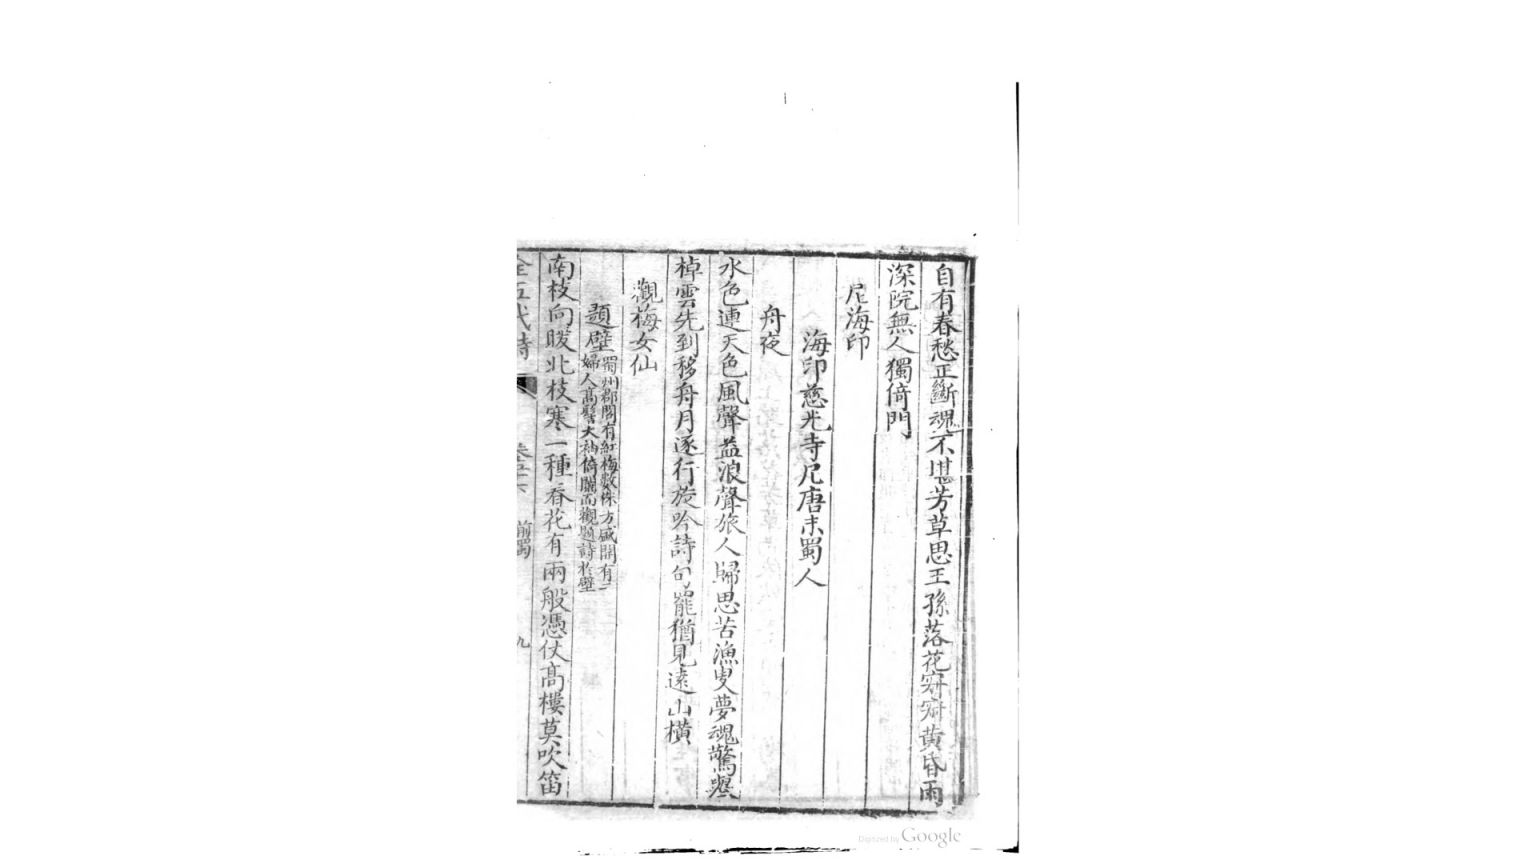 自有春愁正斷魂不堪芳草思王孫落花寂寂黄昏雨
深院無人獨倚門
尼海印
海印慈光寺尼唐末蜀人
舟夜
水色連天色風聲益浪聲旅人歸思苦漁叟夢魂驚舉
棹雲先到移舟月逐行旋吟詩句罷猶見遠山橫
觀梅女仙
題壁
蜀州郡閣有紅梅數株方盛開有二
婦人高髻大袖倚闌而觀題詩於壁
南枝向暖北枝寒一種春花有兩般憑仗高樓莫吹笛
全五代詩
前蜀
九
Digitized by Google